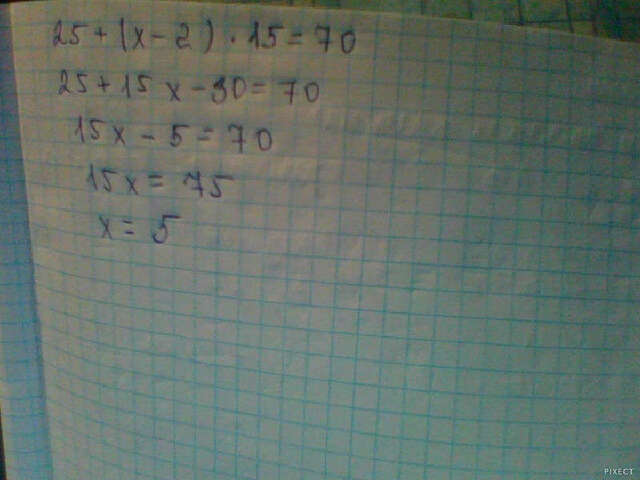 25 + (x - 2) · 15 = 70
25 + 15x - 30 = 70
15x - 5 = 70
15x = 75
x = 5
PIXECT